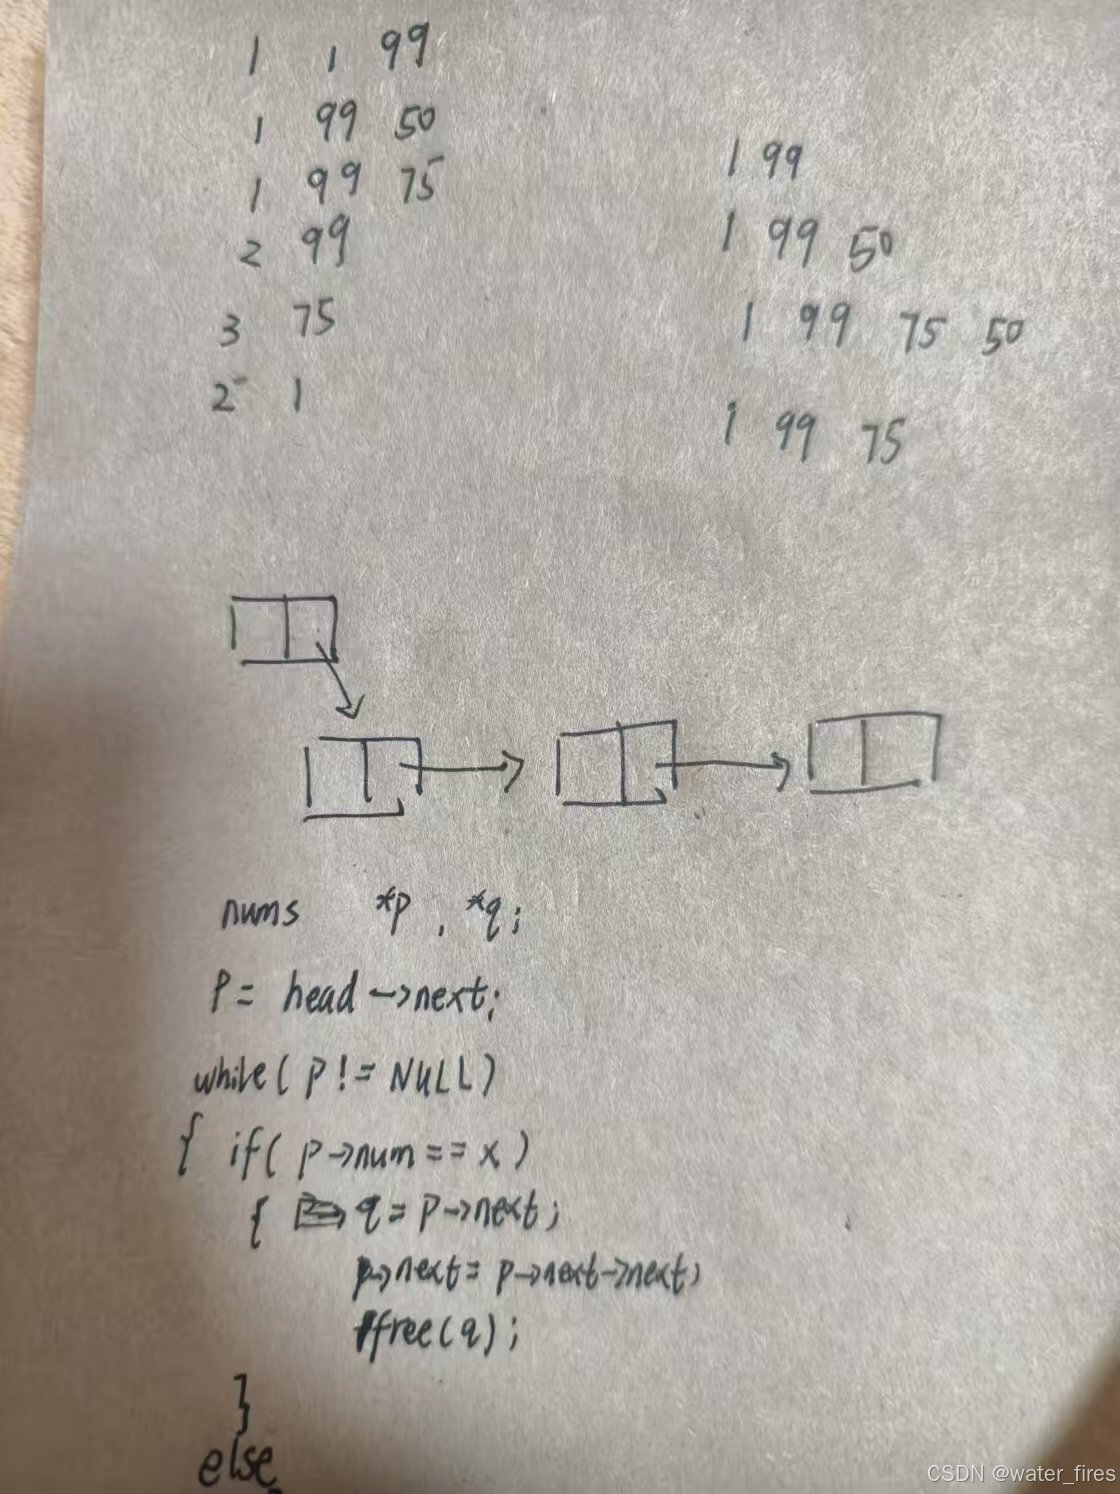 1 1 99
1 99 50
1 99 75
2 99
3 75
2 1
1 99
1 99 50
1 99 75 50
1 99 75
nums *p , *q;
P= head->next;
while( p != NULL)
{ if( p->num == x )
{ q = p->next;
p->next = p->next->next;
free(q);
}
else
CSDN @water_fires